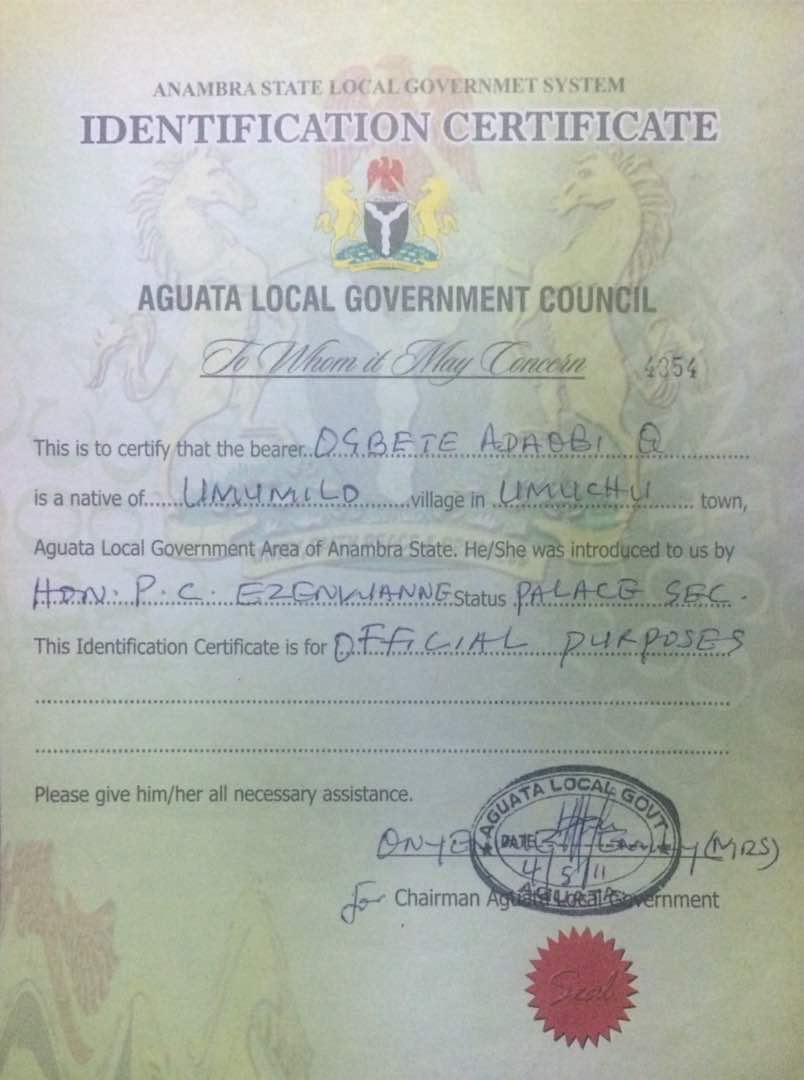 ANAMBRA STATE LOCAL GOVERNMET SYSTEM
IDENTIFICATION CERTIFICATE
AGUATA LOCAL GOVERNMENT COUNCIL
To Whom it May Concern 4354
This is to certify that the bearer..OGBETE ADAOBI Q
is a native of......UMUMILO.........village in UMUCHU........ town,
Aguata Local Government Area of Anambra State. He/She was introduced to us by
HON. P. C. EZENWANNE Status PALACE SEC.
This Identification Certificate is for OFFICIAL PURPOSES
Please give him/her all necessary assistance.
AGUATA LOCAL GOVT
DATE
(MRS)
4/5/11
AGUATA
for Chairman Aguata Local Government
Seal